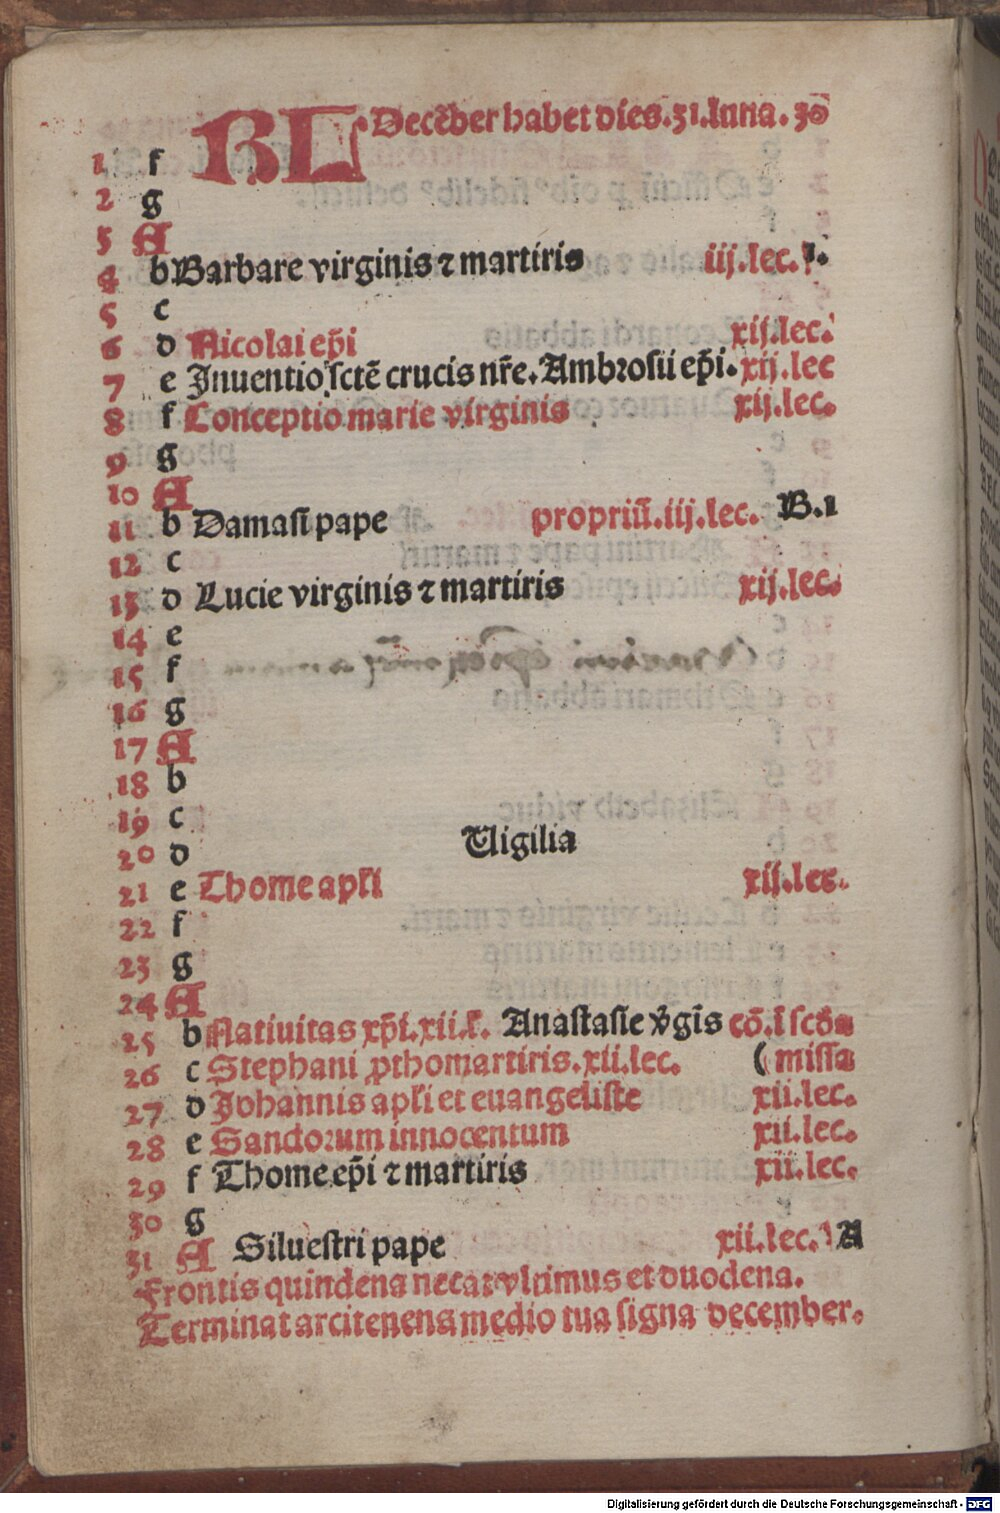 KL Decẽber habet dies.31.luna.30
1 f
2 g
3 A
4 b Barbare virginis ⁊ martiris iij.lec.
5 c
6 d Nicolai ep̃i xij.lec.
7 e Inuentio sctẽ crucis nr̃e. Ambrosii ep̃i. xij.lec
8 f Conceptio marie virginis xij.lec.
9 g
10 A
11 b Damasi pape propriũ.iij.lec. B.1
12 c
13 d Lucie virginis ⁊ martiris xij.lec.
14 e
15 f
16 g
17 A
18 b
19 c
20 d Uigilia
21 e Thome apl̃i xij.lec.
22 f
23 g
24 A
25 b Natiuitas xp̃i.xii.l. Anastasie v̄gis cō.ī scđa
26 c Stephani ꝓthomartiris.xii.lec. ( missa
27 d Johannis apl̃i et euangeliste xii.lec.
28 e Sanctorum innocentum xii.lec.
29 f Thome ep̃i ⁊ martiris xii.lec.
30 g
31 A Siluestri pape xii.lec. A
Frontis quindena necat vltimus et duodena.
Terminat arcitenens medio tua signa december.
Digitalisierung gefördert durch die Deutsche Forschungsgemeinschaft - DFG